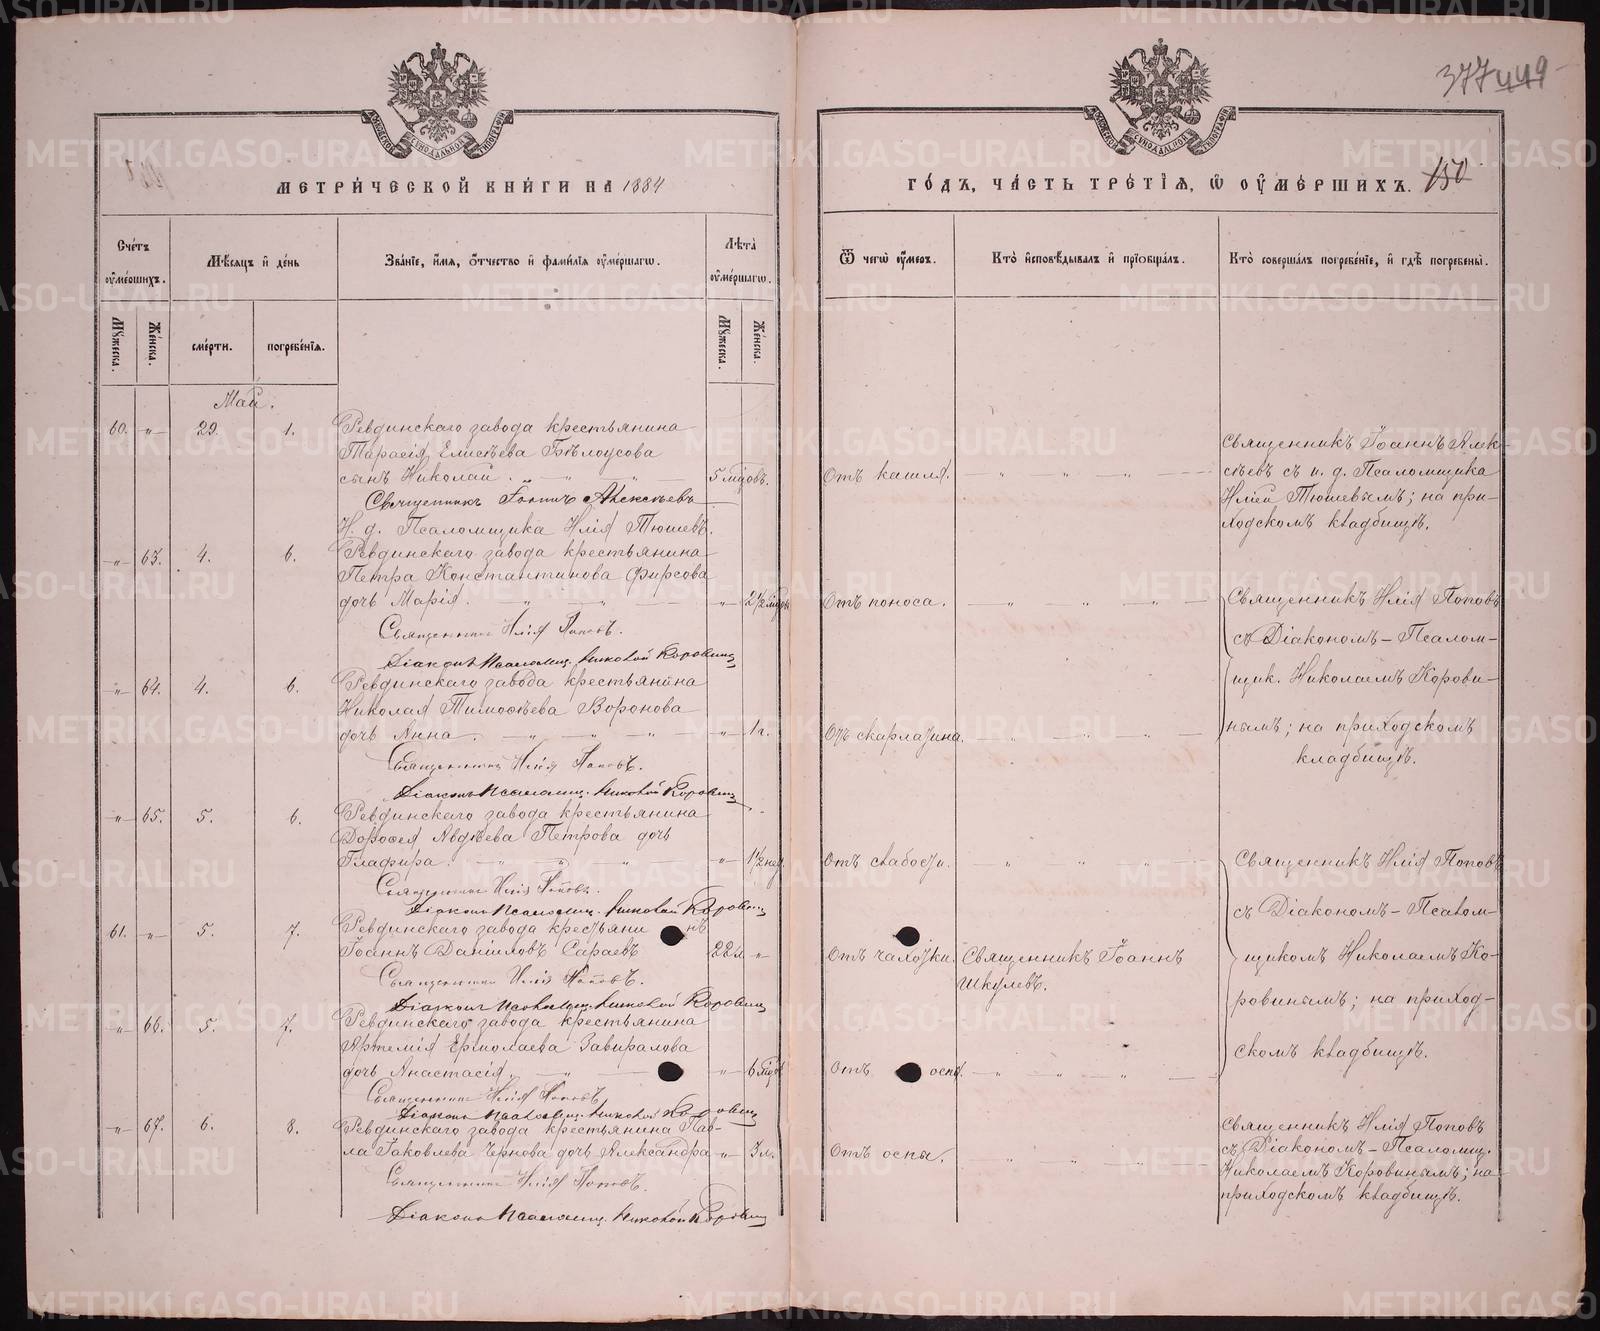 377 449
МЕТРИЧЕСКОЙ КНИГИ НА 1884
ГОДЪ, ЧАСТЬ ТРЕТІЯ, Ѿ ОУМЕРШИХЪ. 150
Счетъ оумершихъ.
Мѣсяцъ и день
Званіе, имя, отчество и фамилія оумершагѡ.
Лѣта оумершагѡ.
Ѿ чегѡ оумеръ.
Кто исповѣдывалъ и пріобщалъ.
Кто совершалъ погребеніе, и гдѣ погребены.
Мужеска.
Женска.
смерти.
погребенія.
Мужеска.
Женска.
Май.
60. „ 29. 1. Ревдинскаго завода крестьянина
Тарасія Елисѣева Бѣлоусова
сынъ Николай. 5 мцовъ. Отъ кашля.
Священникъ Іоаннъ Алексѣевъ
И. д. Псаломщика Илія Тюшевъ.
Священникъ Іоаннъ Алек-
сѣевъ съ и. д. Псаломщика
Иліей Тюшевымъ; на при-
ходскомъ кладбищѣ.
„ 63. 4. 6. Ревдинскаго завода крестьянина
Петра Константинова Фирсова
дочь Марія. „ 2 1/2 мцовъ Отъ поноса.
Священникъ Илія Поповъ.
Діаконъ Псаломщ. Николай Коровинъ
„ 64. 4. 6. Ревдинскаго завода крестьянина
Николая Тимоѳѣева Воронова
дочь Анна. „ 1 г. Отъ скарлатина.
Священникъ Илія Поповъ.
Діаконъ Псаломщ. Николай Коровинъ
Священникъ Илія Поповъ
съ Діакономъ – Псалом-
щик. Николаемъ Корови-
нымъ; на приходскомъ
кладбищѣ.
„ 65. 5. 6. Ревдинскаго завода крестьянина
Дороѳея Авдѣева Петрова дочь
Глафира. „ 1 1/2 нед. Отъ слабости.
Священникъ Илія Поповъ.
Діаконъ Псаломщ. Николай Коровинъ
61. „ 5. 7. Ревдинскаго завода крестьянинъ
Іоаннъ Даніиловъ Сараевъ 22 л. „ Отъ чахотки. Священникъ Іоаннъ
Шкулевъ.
Священникъ Илія Поповъ.
Діаконъ Псаломщ. Николай Коровинъ
„ 66. 5. 7. Ревдинскаго завода крестьянина
Артемія Ермолаева Завиралова
дочь Анастасія. „ 6 мцов. Отъ оспы.
Священникъ Илія Поповъ
Діаконъ Псаломщ. Николай Коровинъ
Священникъ Илія Поповъ
съ Діакономъ – Псалом-
щикомъ Николаемъ Ко-
ровинымъ; на приход-
скомъ кладбищѣ.
„ 67. 6. 8. Ревдинскаго завода крестьянина Пав-
ла Іаковлева Чернова дочь Александра „ 3 л. Отъ оспы.
Священникъ Илія Поповъ.
Діаконъ Псаломщ. Николай Коровинъ
Священникъ Илія Поповъ
съ Діакономъ – Псаломщ.
Николаемъ Коровинымъ; на
приходскомъ кладбищѣ.
METRIKI.GASO-URAL.RU